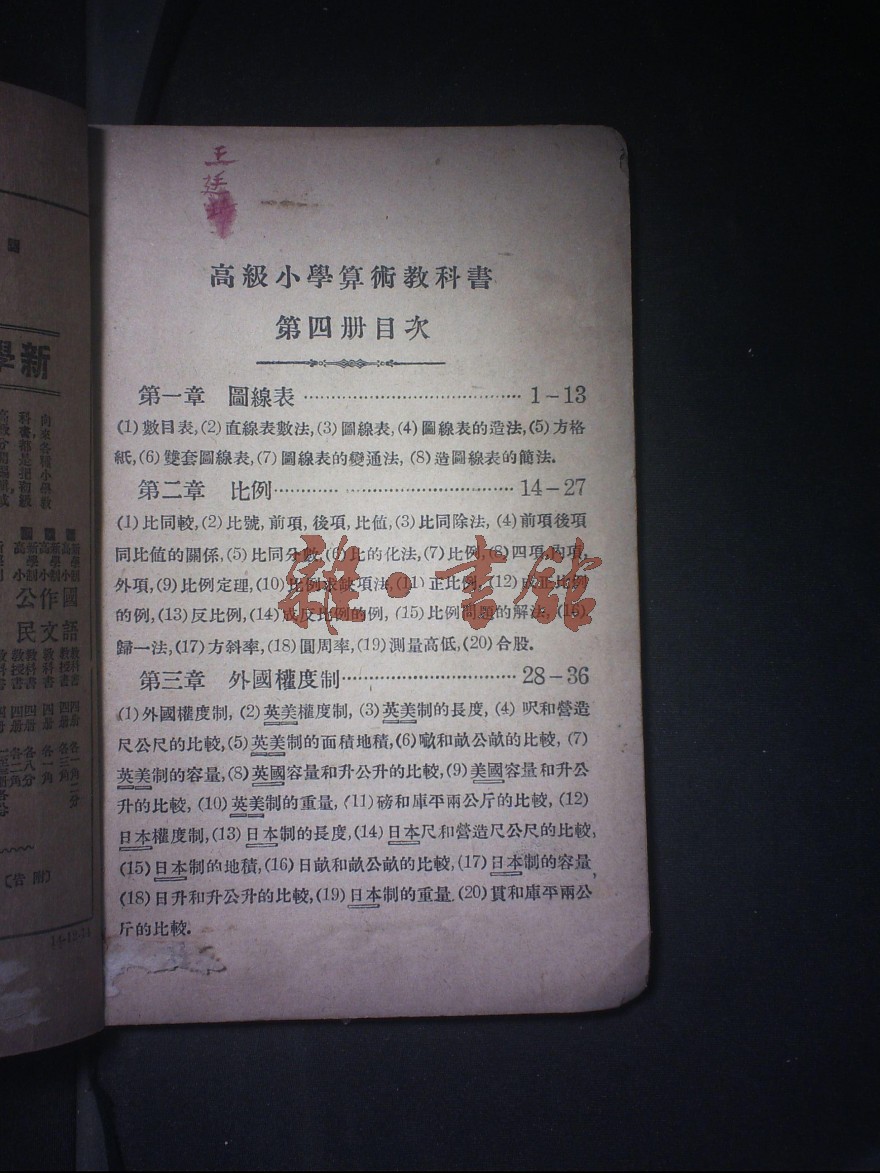 王
廷
高級小學算術教科書
第四册目次
第一章 圖線表 …………………………………… 1－13
(1) 數目表, (2) 直線表數法, (3) 圖線表, (4) 圖線表的造法, (5) 方格
紙, (6) 雙套圖線表, (7) 圖線表的變通法, (8) 造圖線表的簡法.
第二章 比例…………………………………… 14－27
(1) 比同較, (2) 比號, 前項, 後項, 比值, (3) 比同除法, (4) 前項後項
同比值的關係, (5) 比同分數, (6) 比的化法, (7) 比例, (8) 四項, 內項,
外項, (9) 比例定理, (10) 比例求缺項法, (11) 正比例, (12) 成正比例
的例, (13) 反比例, (14) 成反比例的例, (15) 比例問題的解法, (16)
歸一法, (17) 方斜率, (18) 圓周率, (19) 測量高低, (20) 合股.
第三章 外國權度制………………………… 28－36
(1) 外國權度制, (2) 英美權度制, (3) 英美制的長度, (4) 呎和營造
尺公尺的比較, (5) 英美制的面積地積, (6) 噉和畝公畝的比較, (7)
英美制的容量, (8) 英國容量和升公升的比較, (9) 美國容量和升公
升的比較, (10) 英美制的重量, (11) 磅和庫平兩公斤的比較, (12)
日本權度制, (13) 日本制的長度, (14) 日本尺和營造尺公尺的比較,
(15) 日本制的地積, (16) 日畝和畝公畝的比較, (17) 日本制的容量,
(18) 日升和升公升的比較, (19) 日本制的重量, (20) 貫和庫平兩公
斤的比較.
雜·書館
新學
向來各種小學教
公作國
民文語
(附告)